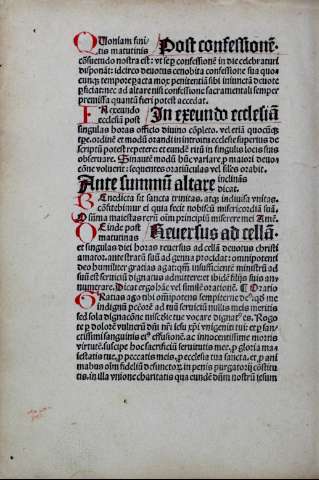 QUoniam fini-
tis matutinis Post confessionē.
cōsuetudo nostra est: vt sep̄ confessionē in die celebraturi
disponāt: idcirco deuotus cenobita confessione sua quo-
cūq; tempore peracta mox penitentiā sibi iniunctā deuote
ꝑficiat: nec ad altare nisi confessione sacramentali semper
premissa quantū fieri potest accedat.
FAc exeundo
ecclesiā post In exeundo ecclesiā
singulas horas officio diuino cōpleto. vel etiā quocūq;
tꝑe. ordinē et modū orandi in introitu ecclesie superius de-
scriptū potest repetere: et eundē ritū in singulis locis suis
obseruare. Si aūt modū hūc variare p maiori deuo-
cōne voluerit: sequentes oratiūculas vel filēs orabit.
Ante summū altare inclinās
dicat.
BEnedicta sit sancta trinitas. atq; indiuisa vnitas.
confitebimur ei quia fecit nobiscū misericordiā suā.
O sūma maiestas rerū oīm principiū miserere mei Amē.
DEinde post
matutinas Reuersus ad cellā.
et singulas diei horas reuersus ad cellā deuotus christi
amator. ante stractū suū ad genua procidat: omnipotenti
deo humiliter gratias agat: cꝙ insufficientē ministrū ad
suū est seruiciū dignatus admittere: et ibidē filijs suis an-
numerare. Dicat ergo hāc vel similē orationē. Oratio
GRatias ago tibi omnipotens sempiterne deus: qꝫ me
indignū pctōrē ad tuū seruiciū nullis meis meritis
sed sola dignacōne misericordie tue vocare dignatus es. Rogo
te p dolorē vulnerū dn̄i iesu xp̄i vnigeniti tui: et p san-
ctissimi sanguinis eius effusionē. ac innocentissime mortis
virtutē. suscipe hoc sacrificiū seruitutis mee. p gloria ma-
iestatis tue. p peccatis meis. p ecclesia tua sancta. et p ani-
mabus oīm fideliū defunctorum. in penis purgatorij cōstitu-
tis. in illa vnione charitatis qua eundē dn̄m nostrū iesum